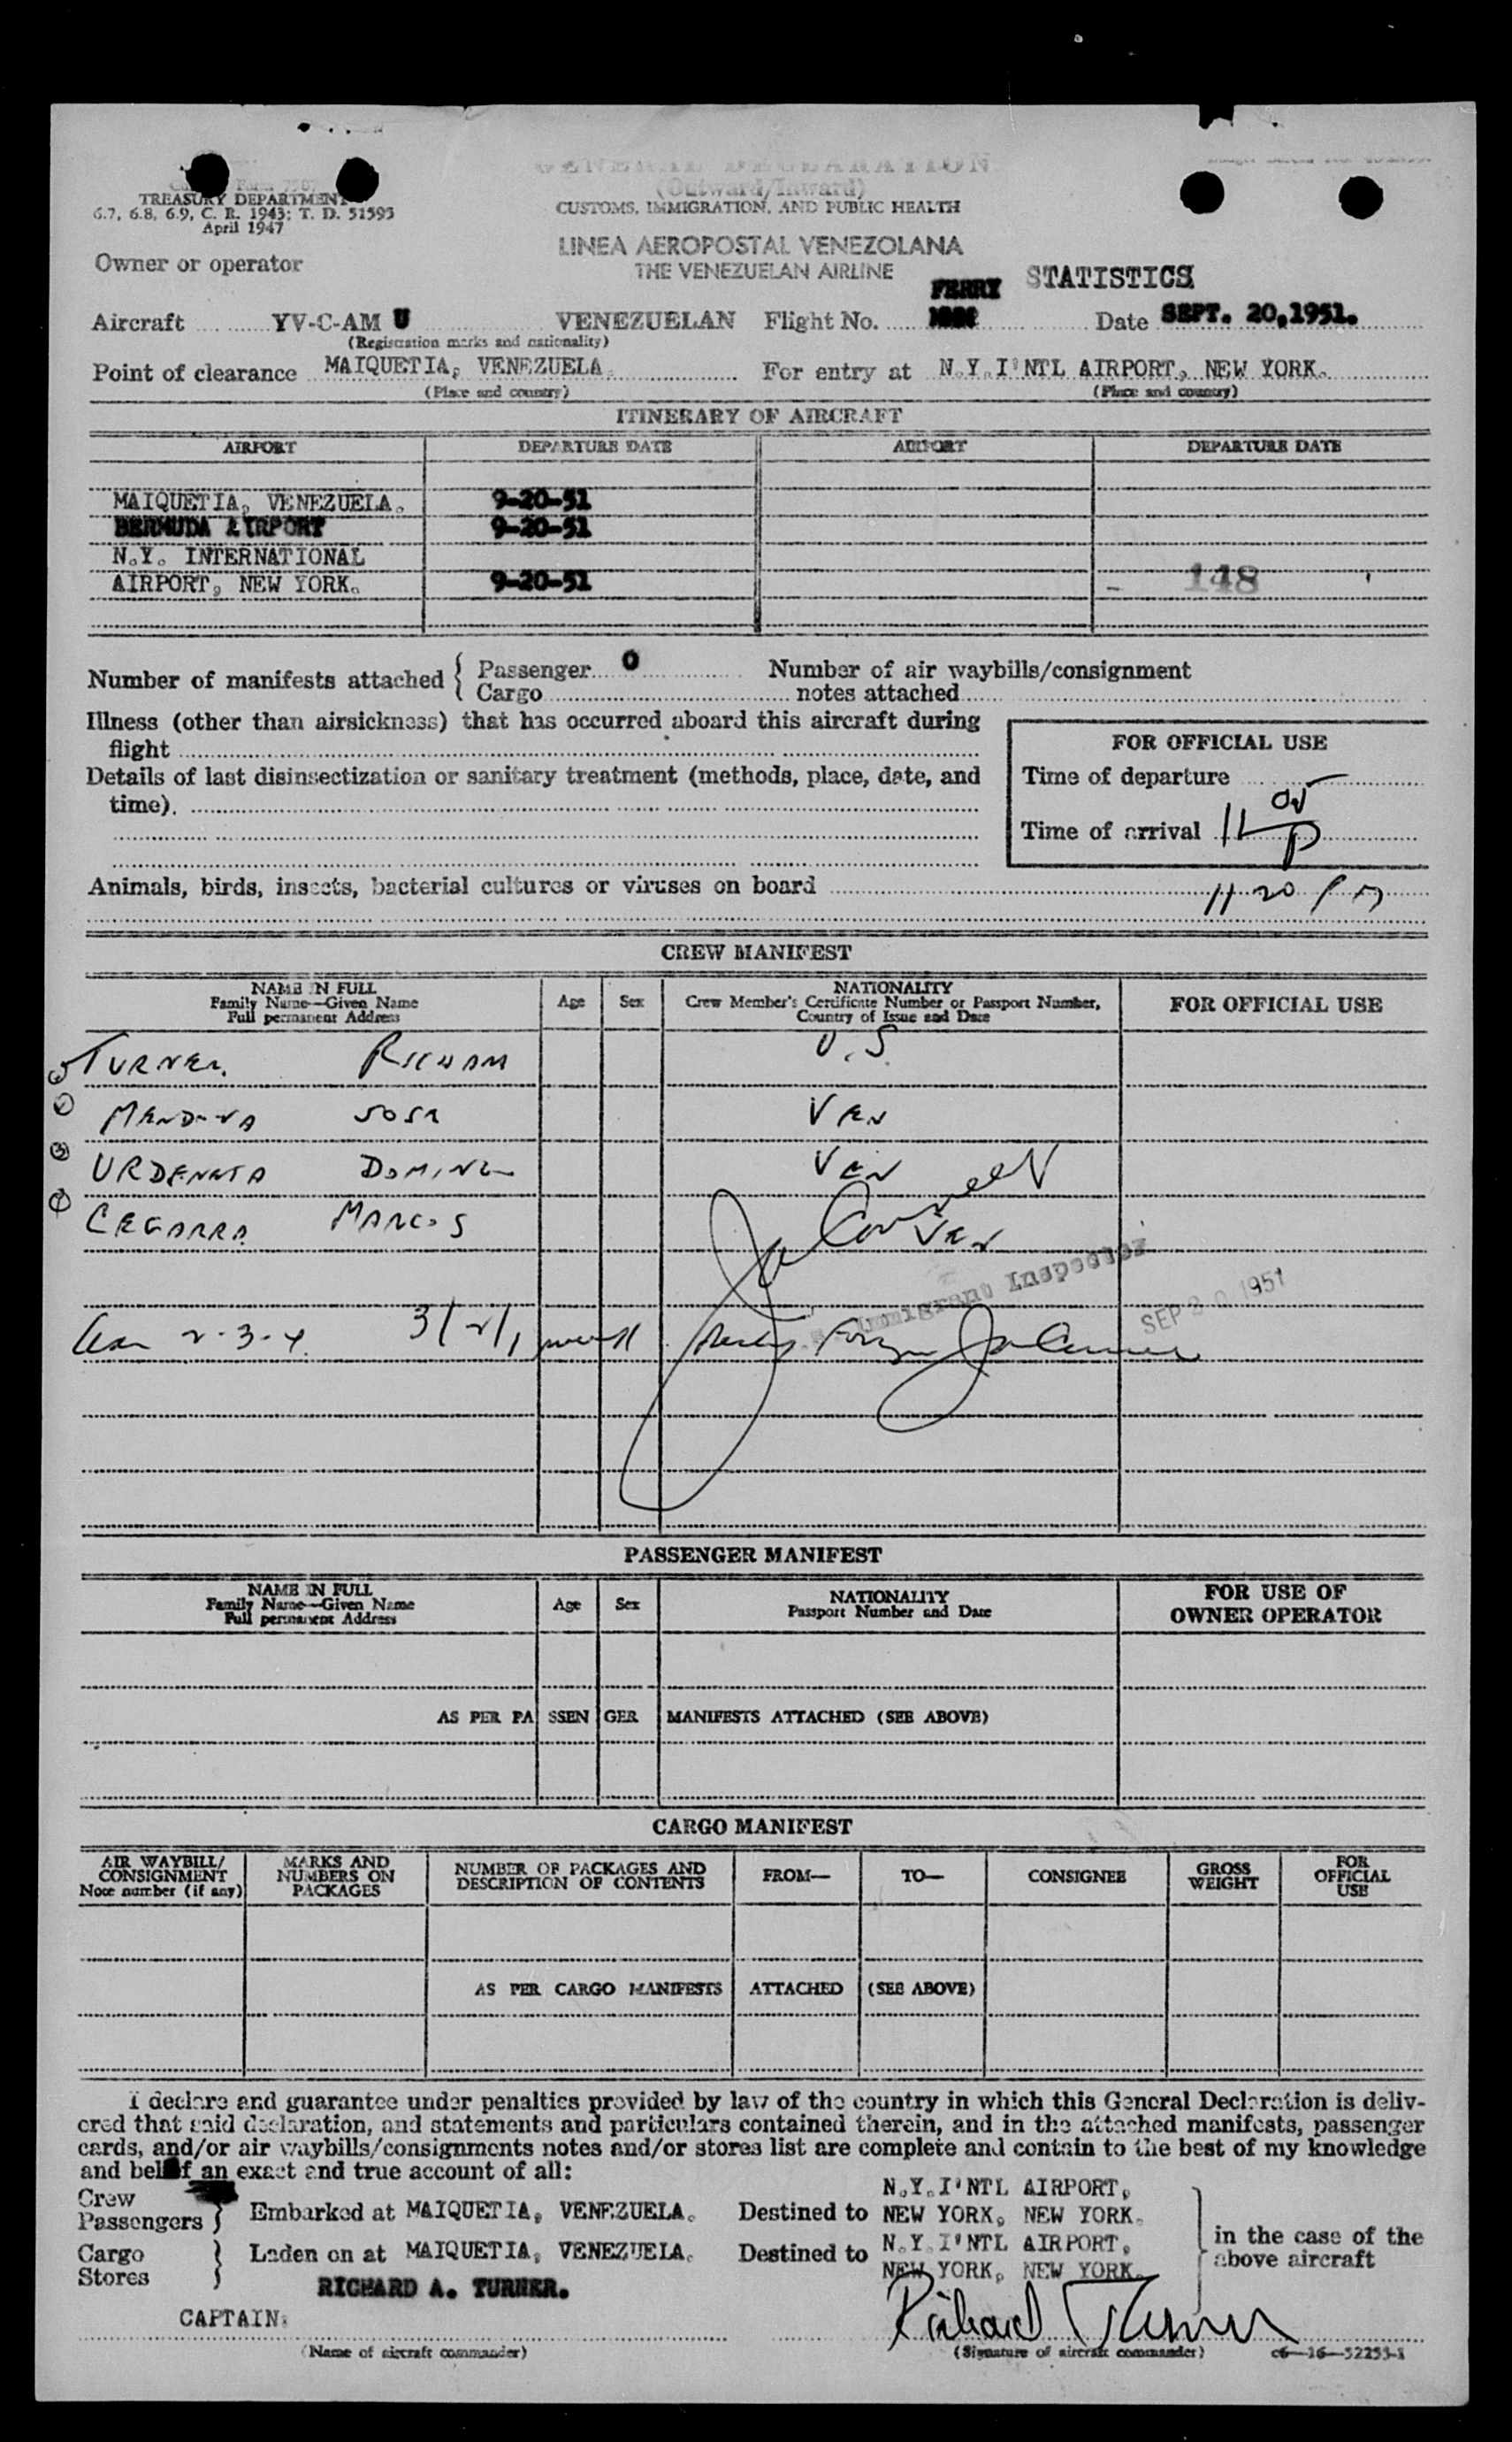 GENERAL DECLARATION
(Outward/Inward)
TREASURY DEPARTMENT
6.7, 6.8, 6.9, C. R. 1943; T. D. 51593
April 1947
CUSTOMS, IMMIGRATION, AND PUBLIC HEALTH
LINEA AEROPOSTAL VENEZOLANA
THE VENEZUELAN AIRLINE
Owner or operator
STATISTICS
FERRY
Aircraft YV-C-AM U VENEZUELAN Flight No. Date SEPT. 20,1951.
(Registration marks and nationality)
Point of clearance MAIQUETIA, VENEZUELA. For entry at N.Y.I'NTL AIRPORT, NEW YORK.
(Place and country) (Place and country)
ITINERARY OF AIRCRAFT
AIRPORT DEPARTURE DATE AIRPORT DEPARTURE DATE
MAIQUETIA, VENEZUELA. 9-20-51
BERMUDA AIRPORT 9-20-51
N.Y. INTERNATIONAL
AIRPORT, NEW YORK. 9-20-51 148
Number of manifests attached { Passenger 0 Number of air waybills/consignment
Cargo notes attached
Illness (other than airsickness) that has occurred aboard this aircraft during
flight
FOR OFFICIAL USE
Details of last disinsectization or sanitary treatment (methods, place, date, and
time).
Time of departure
Time of arrival 11 05 P
Animals, birds, insects, bacterial cultures or viruses on board 11 20 PM
CREW MANIFEST
NAME IN FULL
Family Name—Given Name
Full permanent Address
Age Sex
NATIONALITY
Crew Member's Certificate Number or Passport Number,
Country of Issue and Date
FOR OFFICIAL USE
TURNER. RICHARD U.S.
VEN
URDENETA VEN
CEGARRA MARCOS VEN
Immigrant Inspector
SEP 20 1951
2-3-4.
PASSENGER MANIFEST
NAME IN FULL
Family Name—Given Name
Full permanent Address
Age Sex
NATIONALITY
Passport Number and Date
FOR USE OF
OWNER OPERATOR
AS PER PASSENGER MANIFESTS ATTACHED (SEE ABOVE)
CARGO MANIFEST
AIR WAYBILL/
CONSIGNMENT
Note number (if any)
MARKS AND
NUMBERS ON
PACKAGES
NUMBER OF PACKAGES AND
DESCRIPTION OF CONTENTS
FROM— TO— CONSIGNEE
GROSS
WEIGHT
FOR
OFFICIAL
USE
AS PER CARGO MANIFESTS ATTACHED (SEE ABOVE)
I declare and guarantee under penalties provided by law of the country in which this General Declaration is deliv-
ered that said declaration, and statements and particulars contained therein, and in the attached manifests, passenger
cards, and/or air waybills/consignments notes and/or stores list are complete and contain to the best of my knowledge
and belief an exact and true account of all:
Crew
Passengers } Embarked at MAIQUETIA, VENEZUELA. Destined to N.Y.I'NTL AIRPORT,
NEW YORK, NEW YORK.
Cargo
Stores } Laden on at MAIQUETIA, VENEZUELA. Destined to N.Y.I'NTL AIRPORT,
NEW YORK, NEW YORK.
in the case of the
above aircraft
RICHARD A. TURNER.
CAPTAIN: Richard Turner
(Name of aircraft commander) (Signature of aircraft commander) c6—16—52253-1